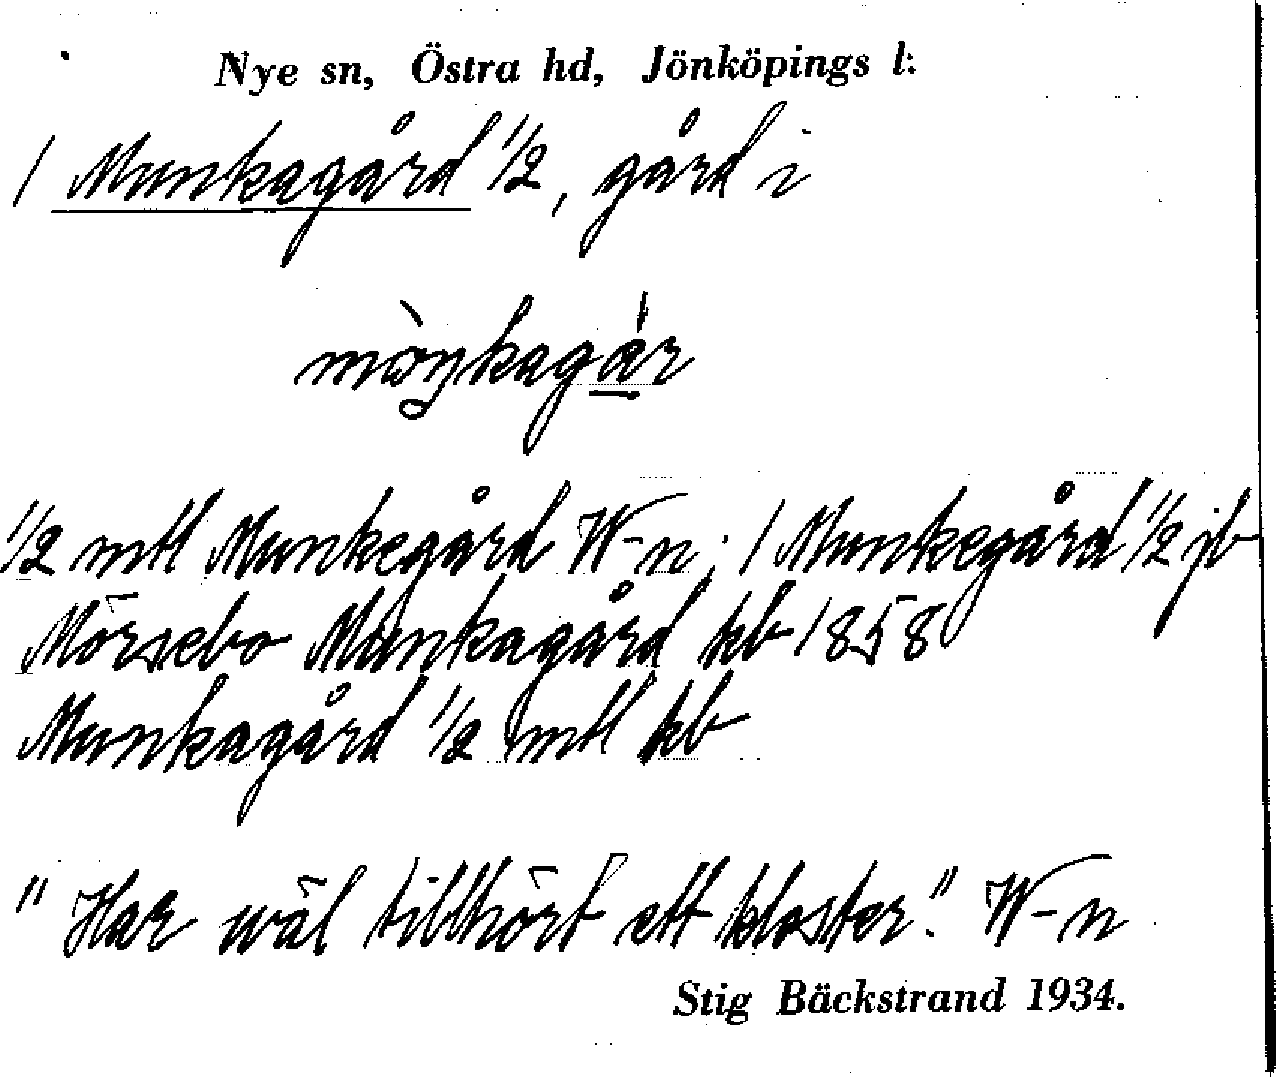 Nye sn, Östra hd, Jönköpings l:
1 Munkagård 1/2, gård i
1/2 mtl Munkegård W-n; 1 Munkegård 1/2 jb
Mörsebo Munkagård kb 1858
Munkagård 1/2 mtl kb
"Har wäl tillhört ett kloster." W-n
Stig Bäckstrand 1934.